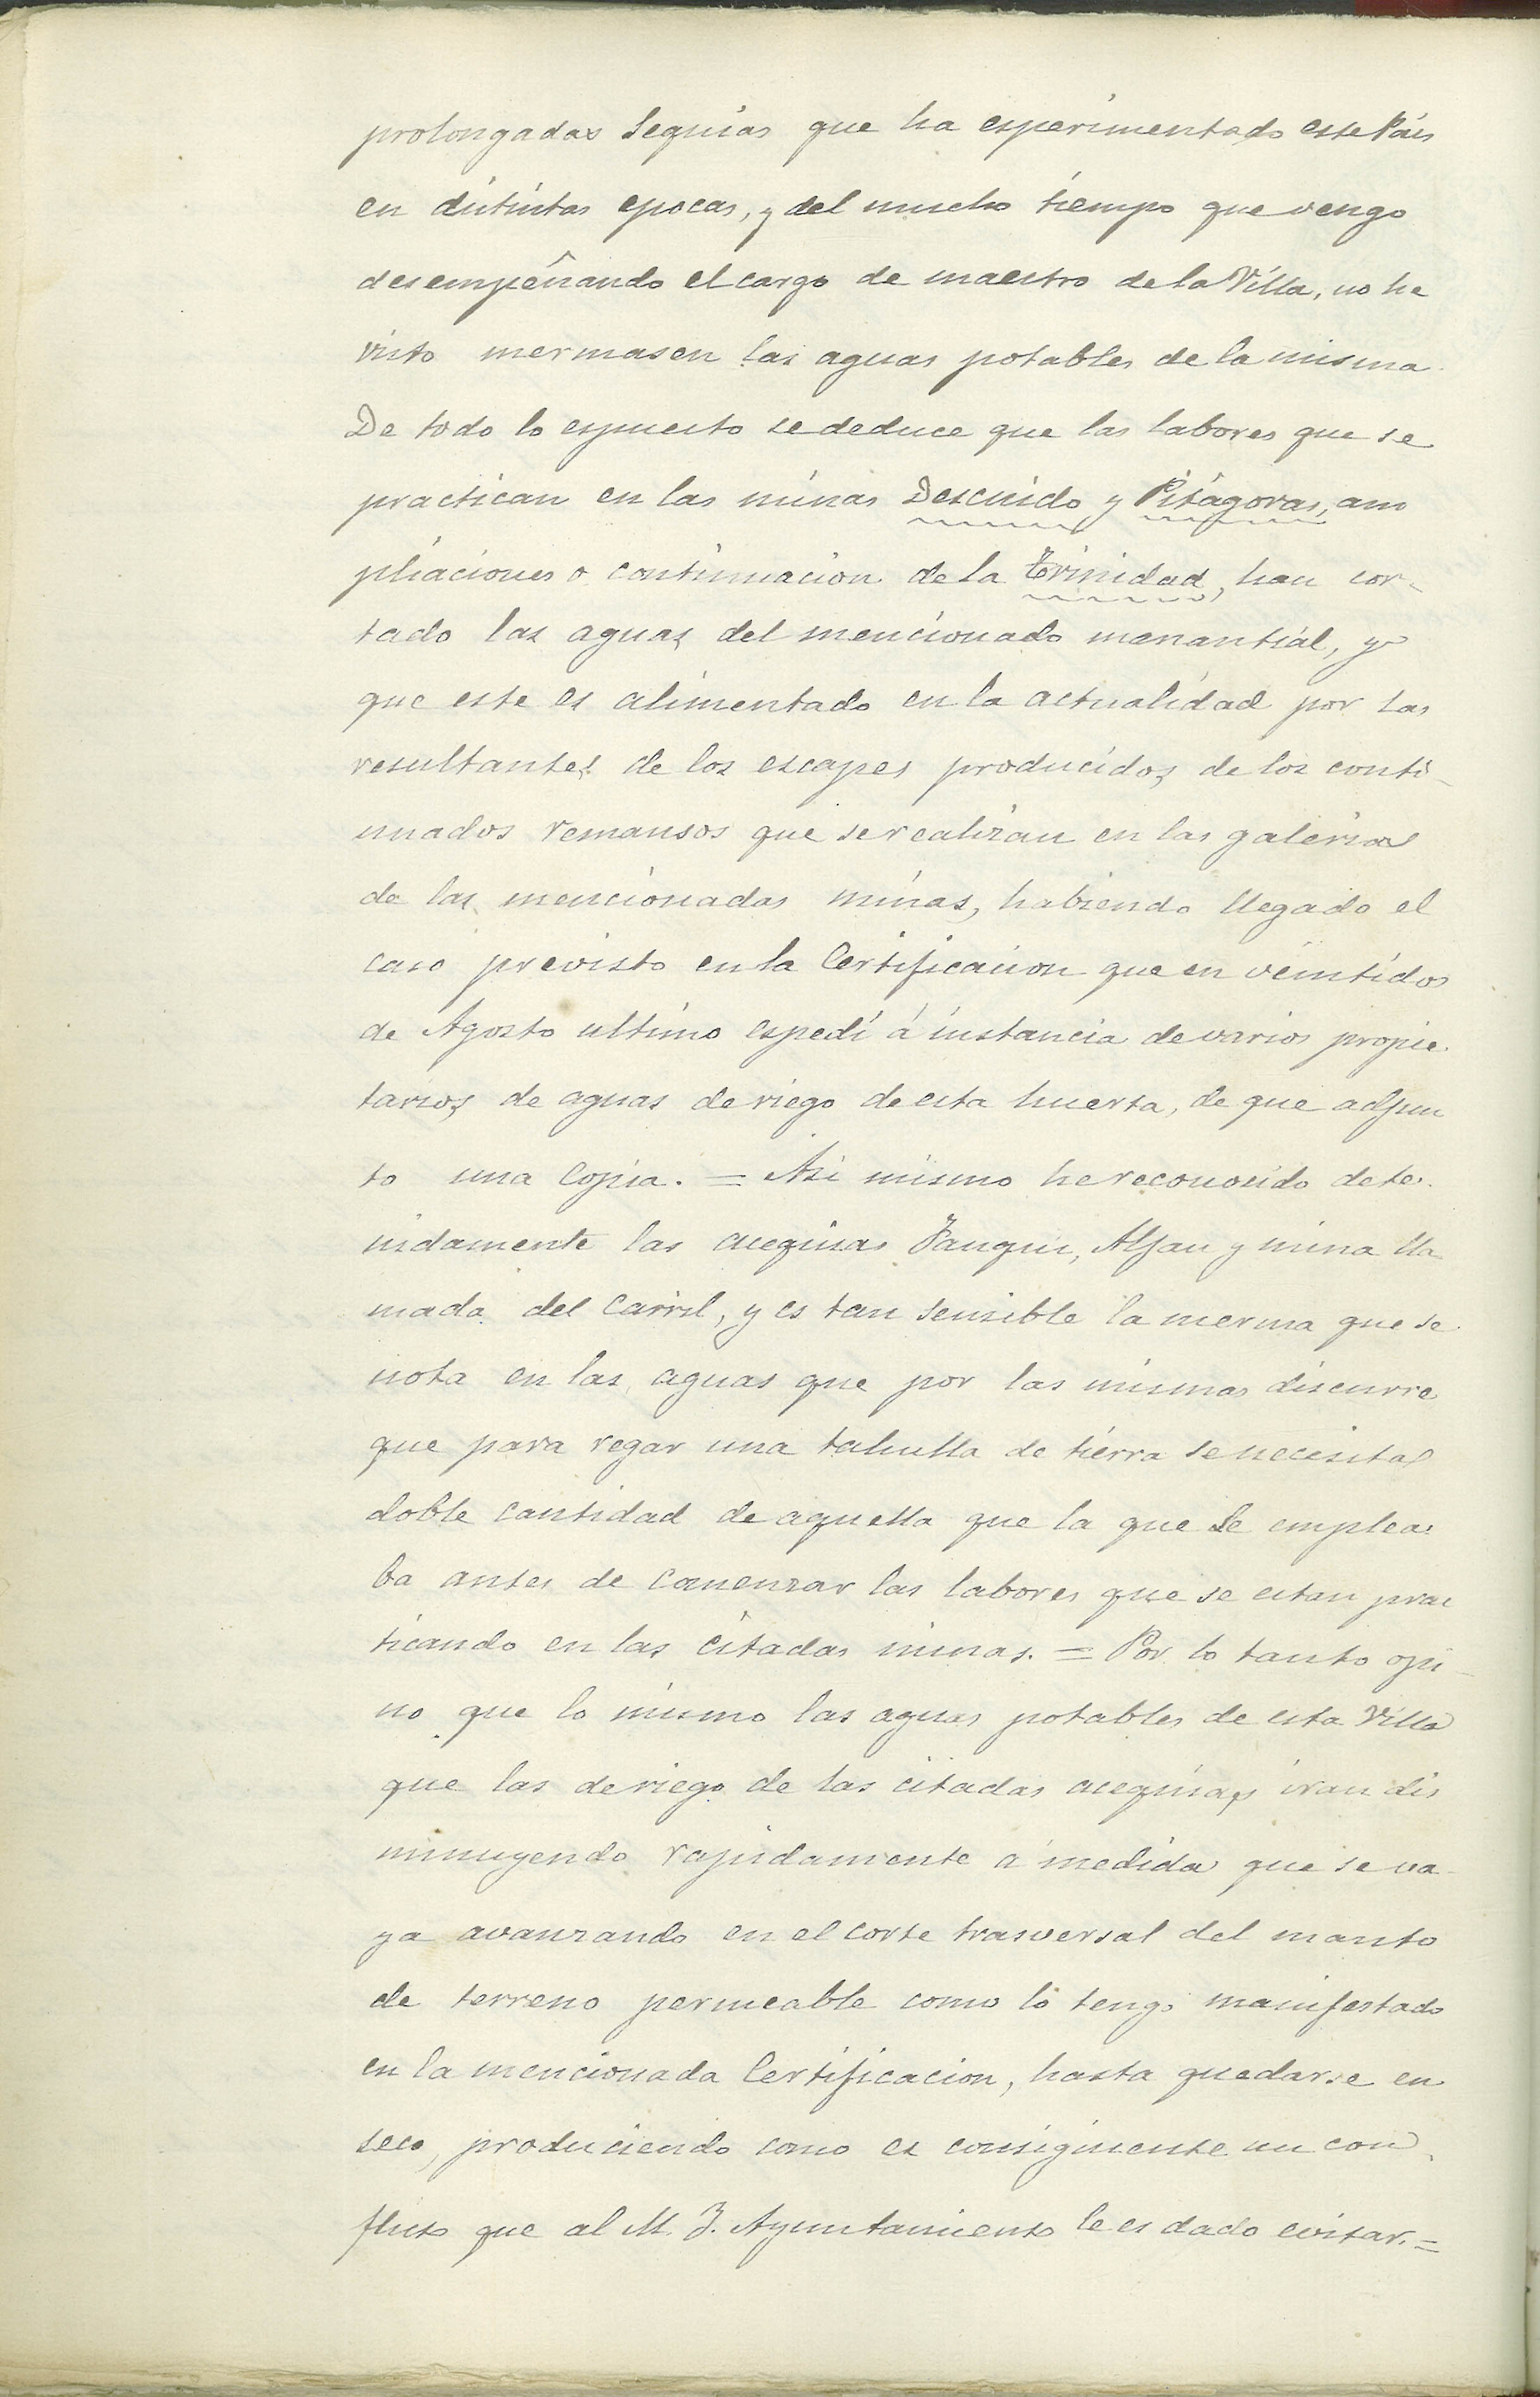 prolongadas sequias que ha esperimentado este Páis
en distintas epocas, y del mucho tiempo que vengo
desempeñando el cargo de maestro de la Villa, no he
visto mermasen las aguas potables de la misma.
De todo lo espuesto se deduce que las labores que se
practican en las minas Descuido y Pitágoras, am
pliaciones o continuacion de la Trinidad, han cor-
tado las aguas del mencionado manantial, y
que este es alimentado en la actualidad por las
resultantes de los escapes producidos de los conti-
nuados remansos que se realizan en las galerias
de las mencionadas minas, habiendo llegado el
caso previsto en la Certificacion que en veintidos
de Agosto ultimo espedí á instancia de varios propie
tarios de aguas de riego de esta huerta, de que adjun
to una copia. = Asi mismo he reconocido dete-
nidamente las acequias Fauquin, Alfau y mina lla
mada del Carril, y es tan sensible la merma que se
nota en las aguas que por las mismas discurre
que para regar una tahulla de tierra se necesita
doble cantidad de aquella que la que se emplea-
ba antes de comenzar las labores que se estan prac
ticando en las citadas minas. = Por lo tanto opi-
no que lo mismo las aguas potables de esta Villa
que las de riego de las citadas acequias iran dis
minuyendo rapidamente á medida que se va-
ya avanzando en el corte trasversal del manto
de terreno permeable como lo tengo manifestado
en la mencionada Certificacion, hasta quedarse en
seco, produciendo como es consiguiente un con-
flicto que al M. Y. Ayuntamiento le es dado evitar. =